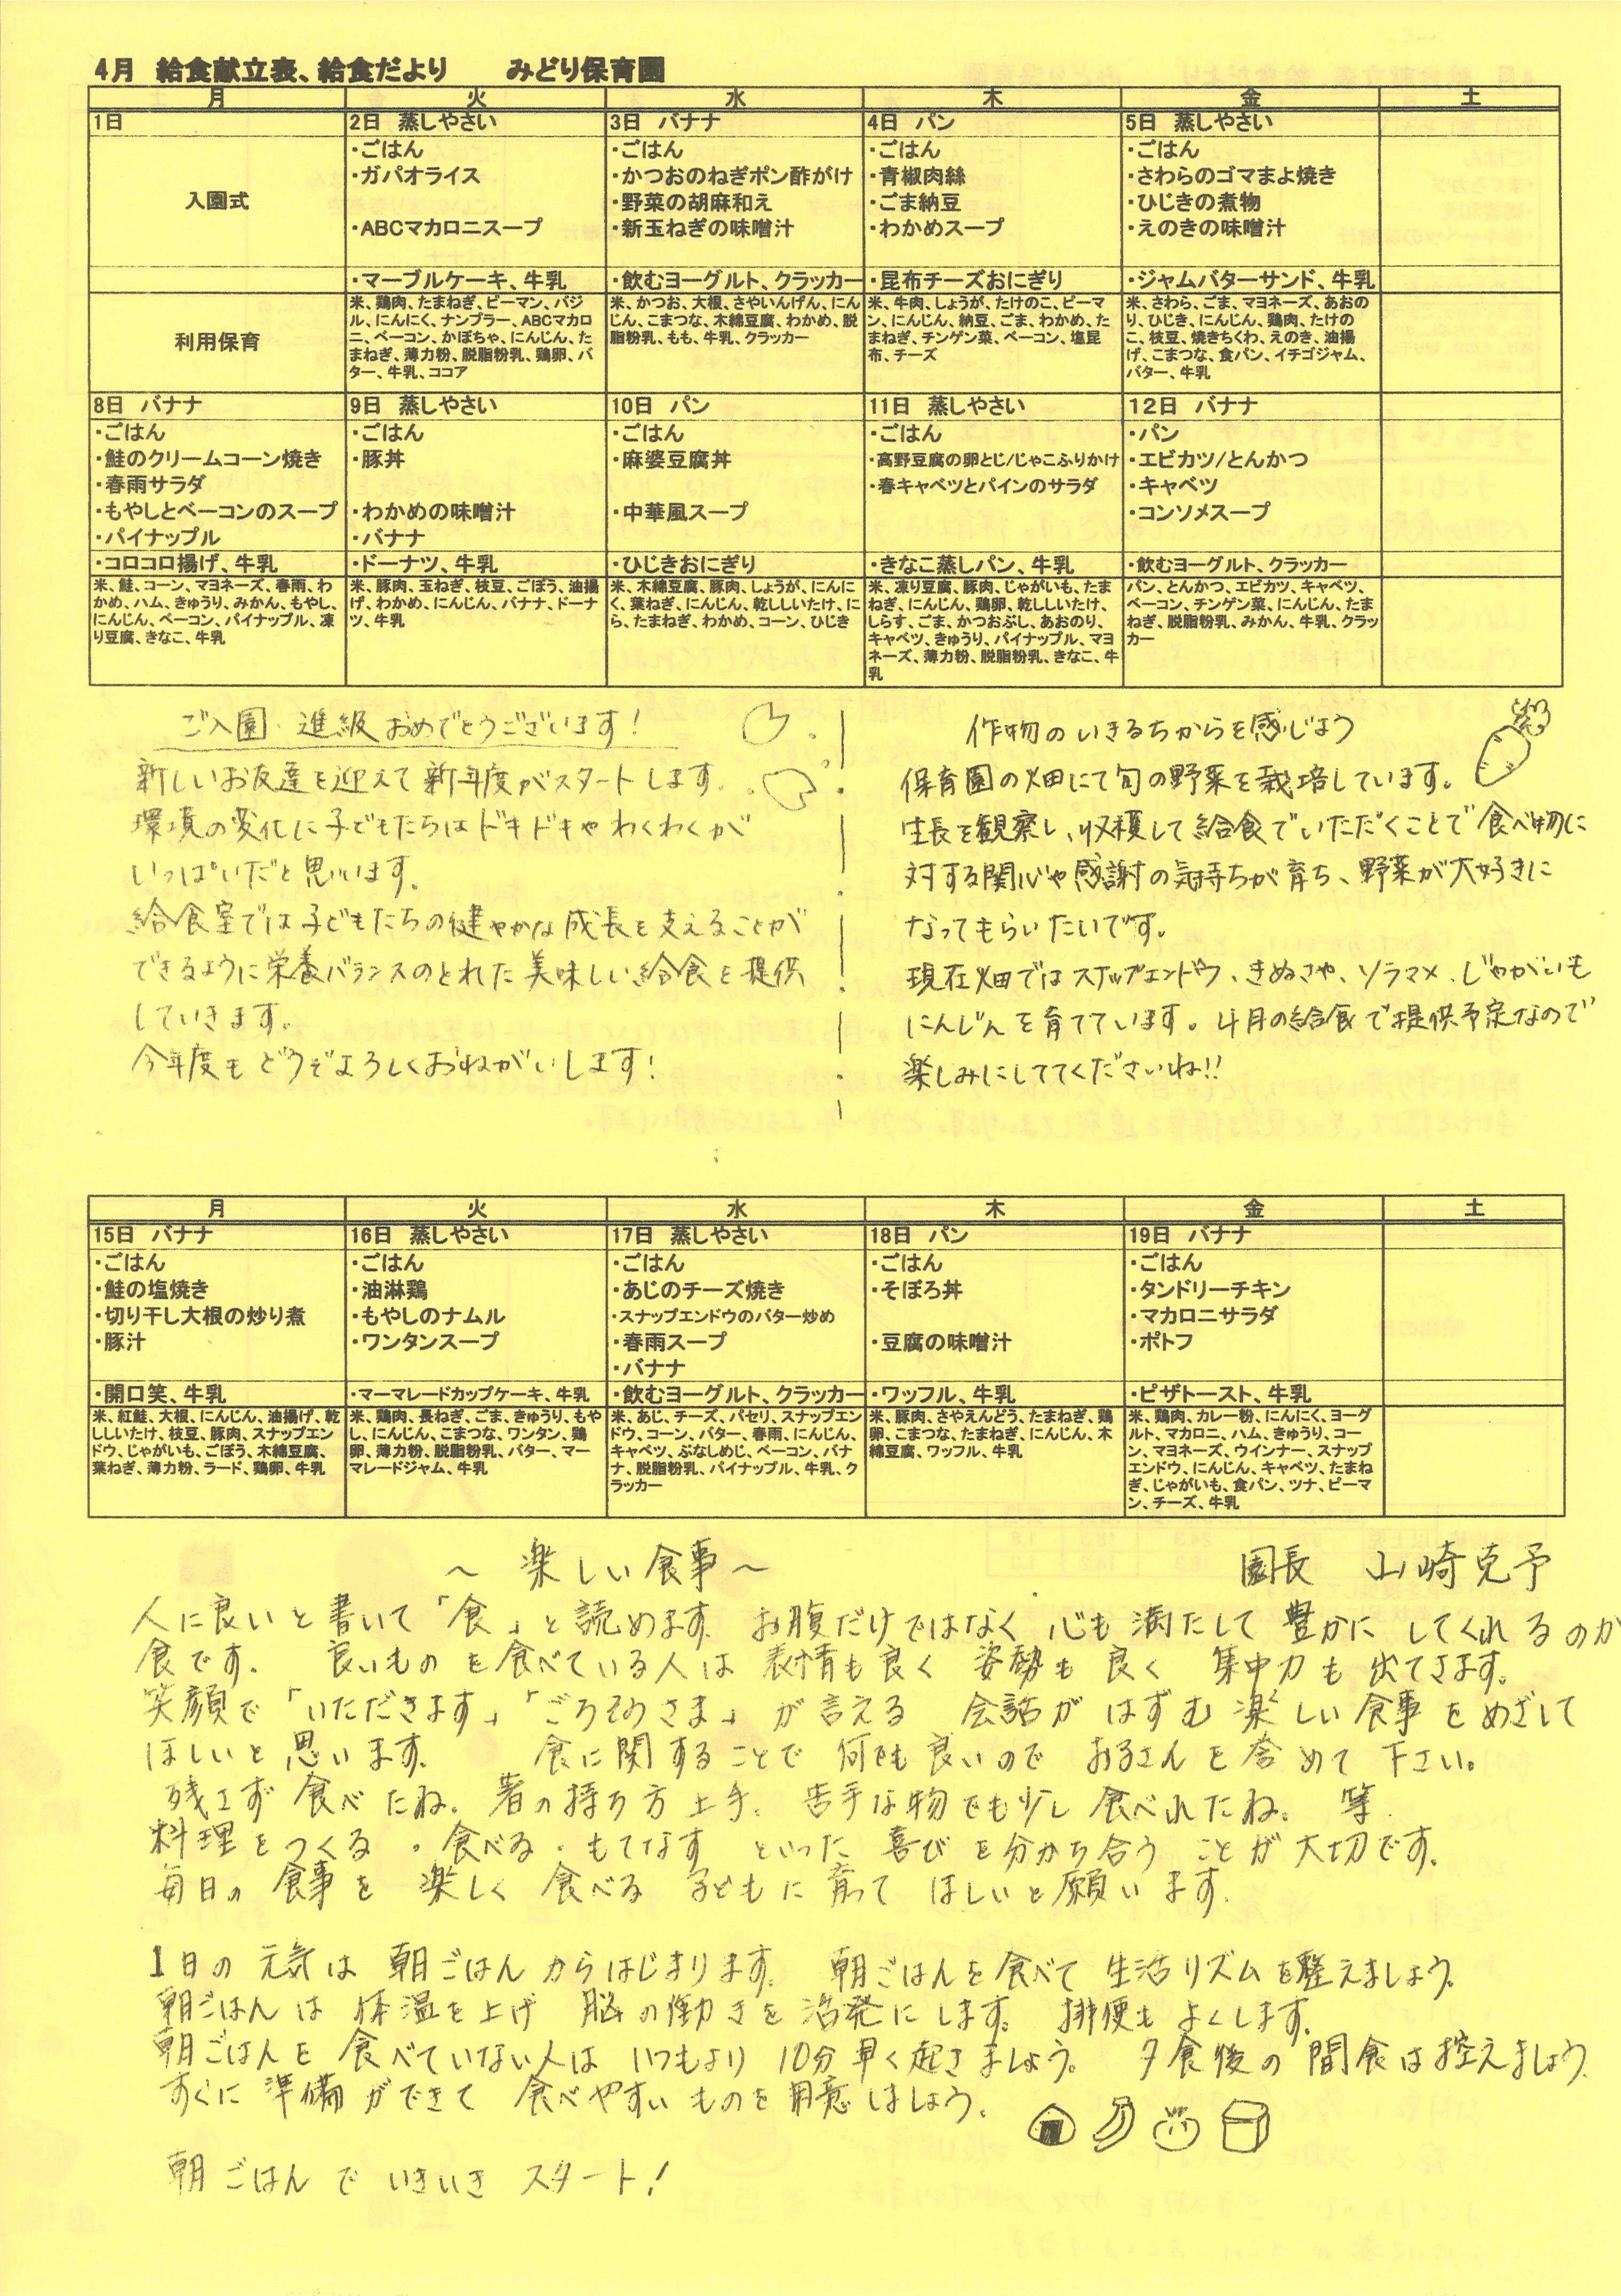 4月 給食献立表、給食だより みどり保育園
月 火 水 木 金 土
1日
入園式
利用保育
2日 蒸しやさい
・ごはん
・ガパオライス
・ABCマカロニスープ
・マーブルケーキ、牛乳
米、鶏肉、たまねぎ、ピーマン、バジ
ル、にんにく、ナンプラー、ABCマカロ
ニ、ベーコン、かぼちゃ、にんじん、た
まねぎ、薄力粉、脱脂粉乳、鶏卵、バ
ター、牛乳、ココア
3日 バナナ
・ごはん
・かつおのねぎポン酢がけ
・野菜の胡麻和え
・新玉ねぎの味噌汁
・飲むヨーグルト、クラッカー
米、かつお、大根、さやいんげん、にん
じん、こまつな、木綿豆腐、わかめ、脱
脂粉乳、もも、牛乳、クラッカー
4日 パン
・ごはん
・青椒肉絲
・ごま納豆
・わかめスープ
・昆布チーズおにぎり
米、牛肉、しょうが、たけのこ、ピーマ
ン、にんじん、納豆、ごま、わかめ、た
まねぎ、チンゲン菜、ベーコン、塩昆
布、チーズ
5日 蒸しやさい
・ごはん
・さわらのゴマまよ焼き
・ひじきの煮物
・えのきの味噌汁
・ジャムバターサンド、牛乳
米、さわら、ごま、マヨネーズ、あおの
り、ひじき、にんじん、鶏肉、たけの
こ、枝豆、焼きちくわ、えのき、油揚
げ、こまつな、食パン、イチゴジャム、
バター、牛乳
8日 バナナ
・ごはん
・鮭のクリームコーン焼き
・春雨サラダ
・もやしとベーコンのスープ
・パイナップル
・コロコロ揚げ、牛乳
米、鮭、コーン、マヨネーズ、春雨、わ
かめ、ハム、きゅうり、みかん、もやし、
にんじん、ベーコン、パイナップル、凍
り豆腐、きなこ、牛乳
9日 蒸しやさい
・ごはん
・豚丼
・わかめの味噌汁
・バナナ
・ドーナツ、牛乳
米、豚肉、玉ねぎ、枝豆、ごぼう、油揚
げ、わかめ、にんじん、バナナ、ドーナ
ツ、牛乳
10日 パン
・ごはん
・麻婆豆腐丼
・中華風スープ
・ひじきおにぎり
米、木綿豆腐、豚肉、しょうが、にんに
く、葉ねぎ、にんじん、乾ししいたけ、に
ら、たまねぎ、わかめ、コーン、ひじき
11日 蒸しやさい
・ごはん
・高野豆腐の卵とじ/じゃこふりかけ
・春キャベツとパインのサラダ
・きなこ蒸しパン、牛乳
米、凍り豆腐、豚肉、じゃがいも、たま
ねぎ、にんじん、鶏卵、乾ししいたけ、
しらす、ごま、かつおぶし、あおのり、
キャベツ、きゅうり、パイナップル、マヨ
ネーズ、薄力粉、脱脂粉乳、きなこ、牛
乳
12日 バナナ
・パン
・エビカツ/とんかつ
・キャベツ
・コンソメスープ
・飲むヨーグルト、クラッカー
パン、とんかつ、エビカツ、キャベツ、
ベーコン、チンゲン菜、にんじん、たま
ねぎ、脱脂粉乳、みかん、牛乳、クラッ
カー
ご入園・進級おめでとうございます!
新しいお友達を迎えて新年度がスタートします。
環境の変化に子どもたちはドキドキやわくわくが
いっぱいだと思います。
給食室では子どもたちの健やかな成長を支えることが
できるように栄養バランスのとれた美味しい給食を提供
していきます。
今年度もどうぞよろしくおねがいします!
作物のいきるちからを感じよう
保育園の畑にて旬の野菜を栽培しています。
生長を観察し、収穫して給食でいただくことで食べ物に
対する関心や感謝の気持ちが育ち、野菜が大好きに
なってもらいたいです。
現在畑ではスナップエンドウ、きぬさや、ソラマメ、じゃがいも
にんじんを育てています。4月の給食で提供予定なので
楽しみにしててくださいね!!
月 火 水 木 金 土
15日 バナナ
・ごはん
・鮭の塩焼き
・切り干し大根の炒り煮
・豚汁
・開口笑、牛乳
米、紅鮭、大根、にんじん、油揚げ、乾
ししいたけ、枝豆、豚肉、スナップエン
ドウ、じゃがいも、ごぼう、木綿豆腐、
葉ねぎ、薄力粉、ラード、鶏卵、牛乳
16日 蒸しやさい
・ごはん
・油淋鶏
・もやしのナムル
・ワンタンスープ
・マーマレードカップケーキ、牛乳
米、鶏肉、長ねぎ、ごま、きゅうり、もや
し、にんじん、こまつな、ワンタン、鶏
卵、薄力粉、脱脂粉乳、バター、マー
マレードジャム、牛乳
17日 蒸しやさい
・ごはん
・あじのチーズ焼き
・スナップエンドウのバター炒め
・春雨スープ
・バナナ
・飲むヨーグルト、クラッカー
米、あじ、チーズ、パセリ、スナップエン
ドウ、コーン、バター、春雨、にんじん、
キャベツ、ぶなしめじ、ベーコン、バナ
ナ、脱脂粉乳、パイナップル、牛乳、ク
ラッカー
18日 パン
・ごはん
・そぼろ丼
・豆腐の味噌汁
・ワッフル、牛乳
米、豚肉、さやえんどう、たまねぎ、鶏
卵、こまつな、たまねぎ、にんじん、木
綿豆腐、ワッフル、牛乳
19日 バナナ
・ごはん
・タンドリーチキン
・マカロニサラダ
・ポトフ
・ピザトースト、牛乳
米、鶏肉、カレー粉、にんにく、ヨーグ
ルト、マカロニ、ハム、きゅうり、コー
ン、マヨネーズ、ウインナー、スナップ
エンドウ、にんじん、キャベツ、たまね
ぎ、じゃがいも、食パン、ツナ、ピーマ
ン、チーズ、牛乳
～ 楽しい食事～ 園長 山崎克予
人に良いと書いて「食」と読めます。お腹だけではなく 心も満たして 豊かに してくれるのが
食です。 良いものを食べている人は 表情も良く 姿勢も良く 集中力も出てきます。
笑顔で「いただきます」「ごちそうさま」が言える 会話がはずむ楽しい食事をめざして
ほしいと思います。 食に関することで 何でも良いので お子さんを含めて下さい。
残さず食べたね。箸の持ち方上手。苦手な物でも少し食べれたね。等
料理をつくる・食べる・もてなす といった喜びを分かち合うことが大切です。
毎日の食事を 楽しく食べる 子どもに育って ほしいと願います。
1日の元気は 朝ごはんからはじまります。 朝ごはんを食べて生活リズムを整えましょう。
朝ごはんは 体温を上げ 脳の働きを活発にします。 排便もよくします。
朝ごはんを食べていない人は いつもより10分早く起きましょう。 夕食後の間食は控えましょう。
すぐに準備ができて 食べやすいものを用意しましょう。
朝ごはんでいきいきスタート!